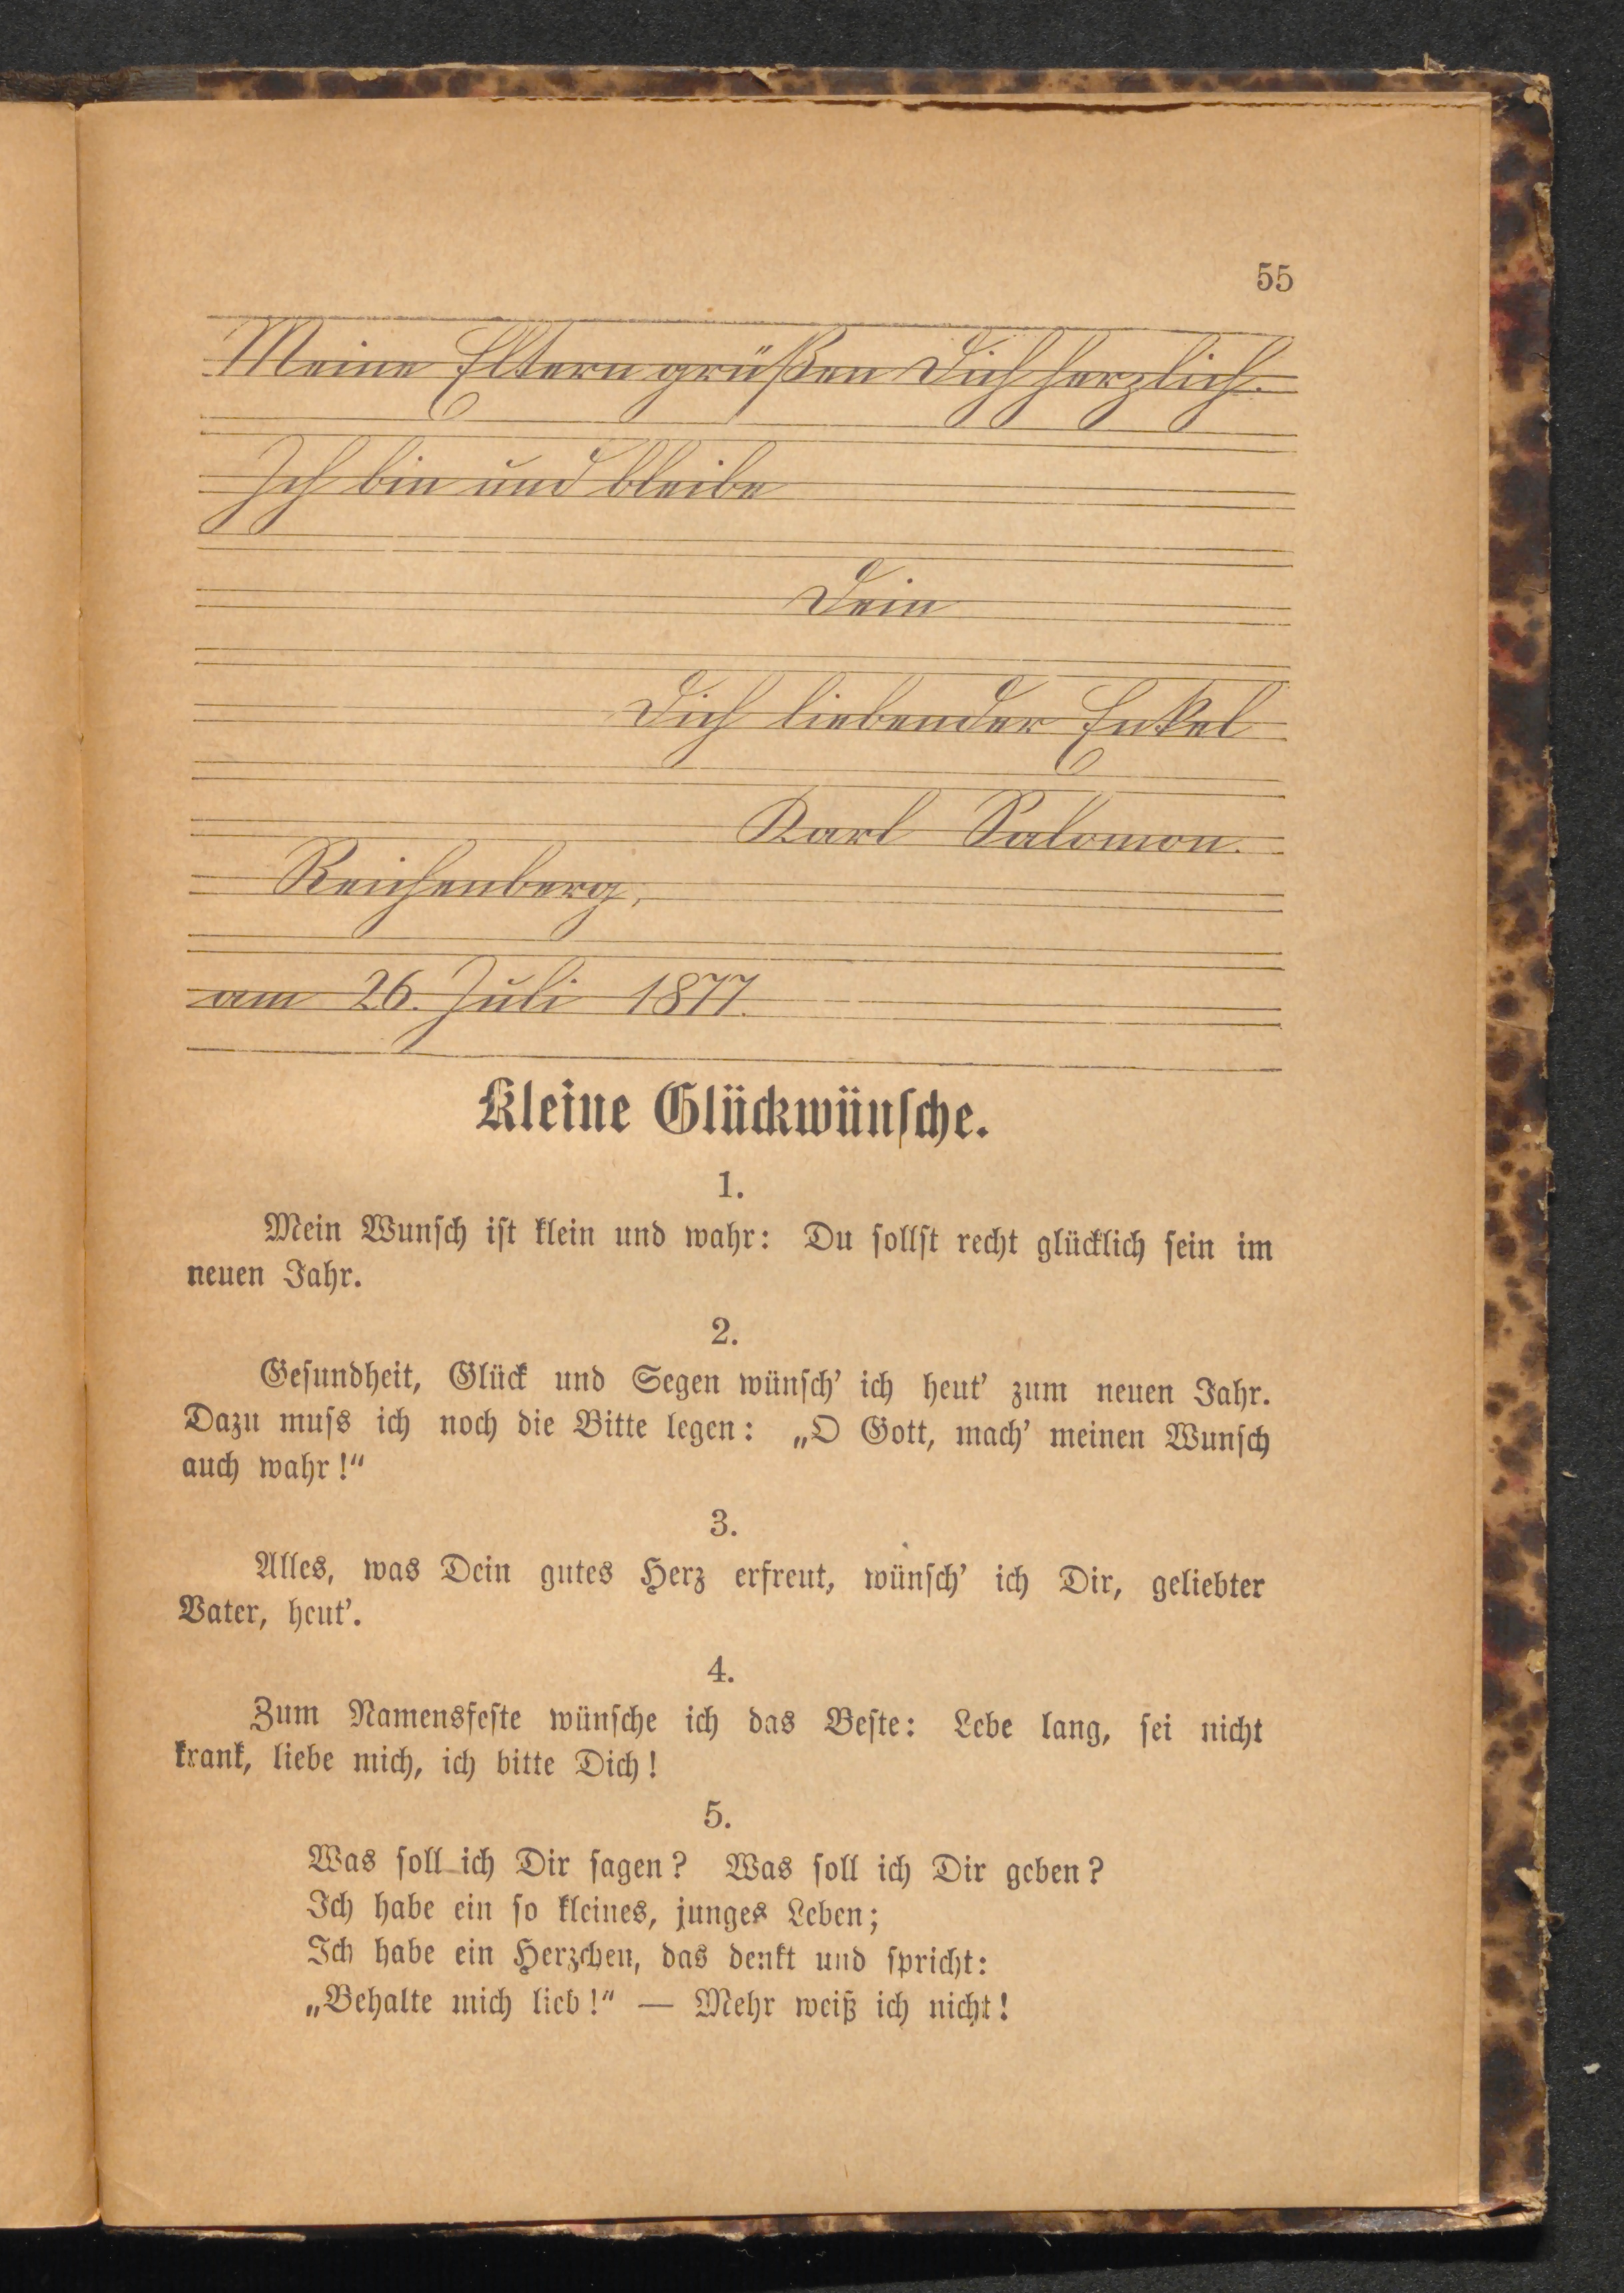 55
Meine Eltern grüßen Dich herzlich.
Ich bin und bleibe
Dein
Dich liebender Enkel
Karl Salomon.
Reichenberg,
am 26. Juli 1877.
Kleine Glückwünsche.
1.
Mein Wunsch ist klein und wahr: Du sollst recht glücklich sein im
neuen Jahr.
2.
Gesundheit, Glück und Segen wünsch’ ich heut’ zum neuen Jahr.
Dazu muss ich noch die Bitte legen: „O Gott, mach’ meinen Wunsch
auch wahr!“
3.
Alles, was Dein gutes Herz erfreut, wünsch’ ich Dir, geliebter
Vater, heut’.
4.
Zum Namensfeste wünsche ich das Beste: Lebe lang, sei nicht
krank, liebe mich, ich bitte Dich!
5.
Was soll ich Dir sagen? Was soll ich Dir geben?
Ich habe ein so kleines, junges Leben;
Ich habe ein Herzchen, das denkt und spricht:
„Behalte mich lieb!“ — Mehr weiß ich nicht!